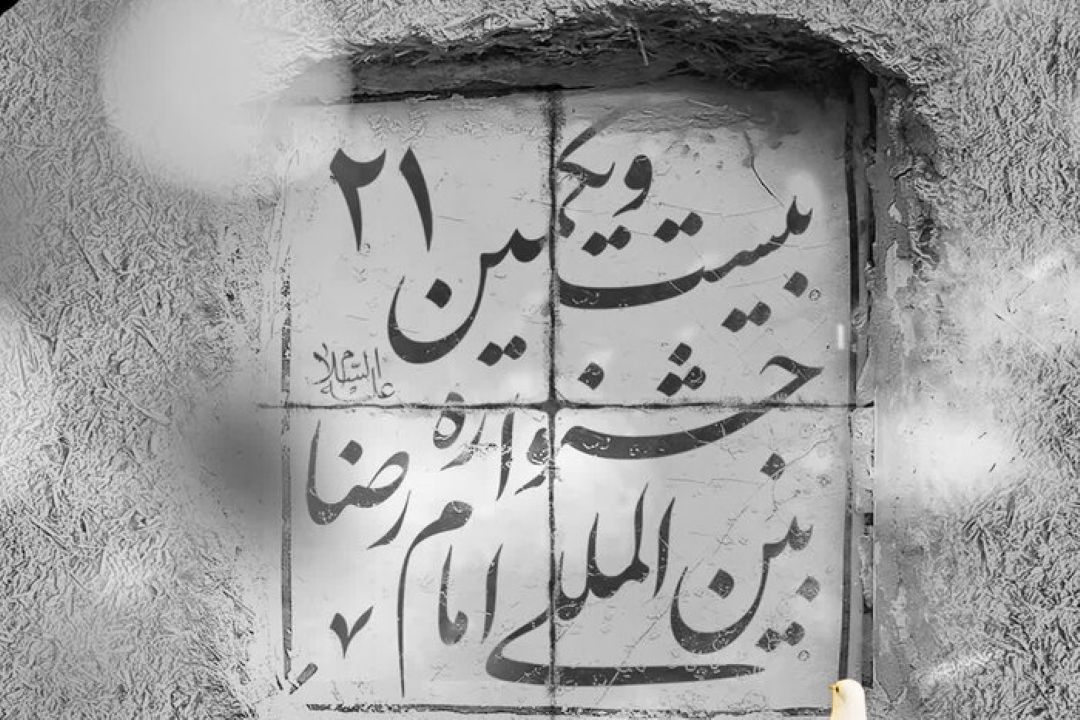 بیست و یکمین ۲۱
جشنواره
بین المللی امام رضا
علیه السلام
۷